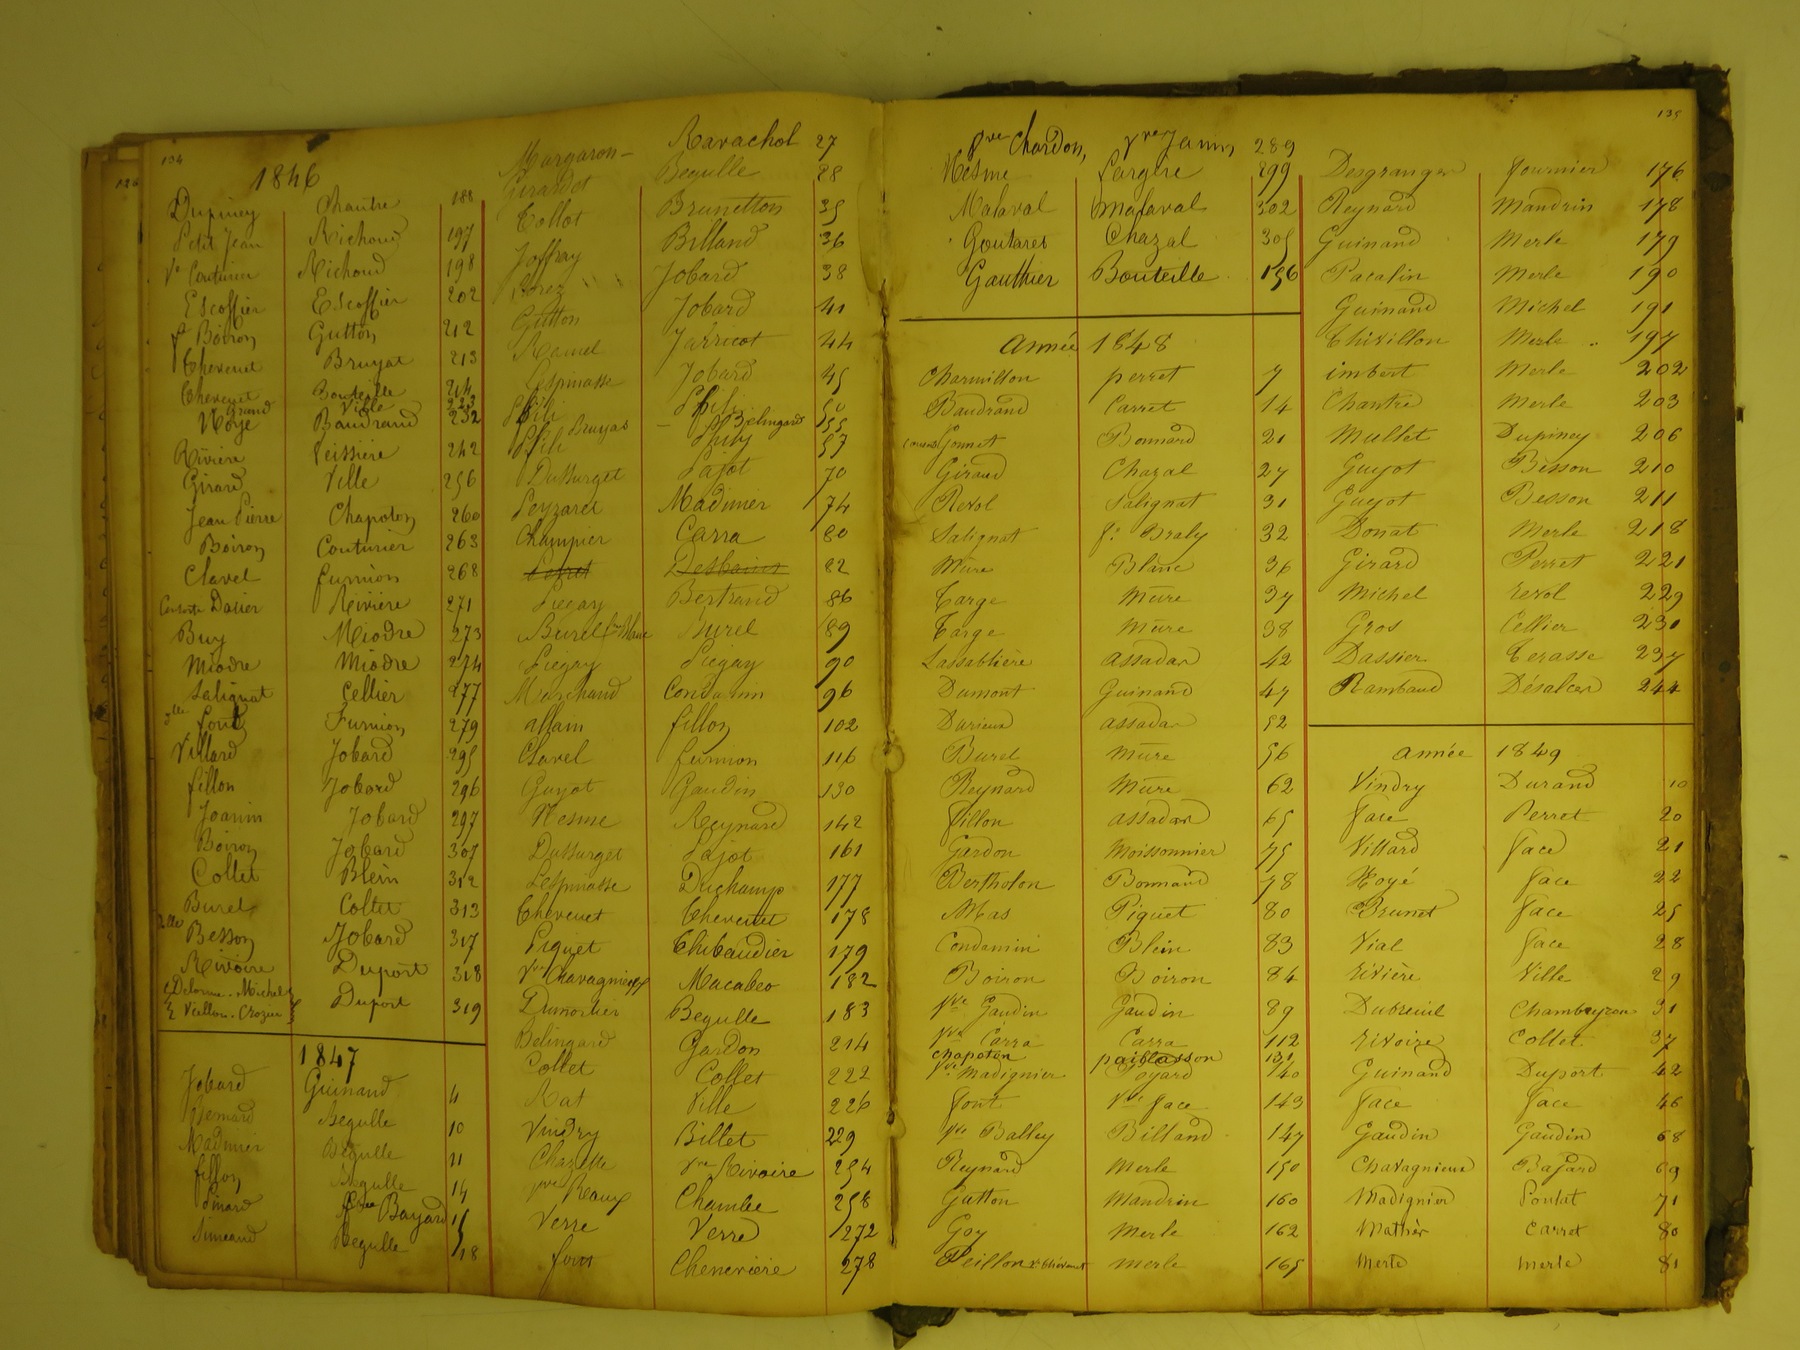 134
1846
Dupiney Chantre 188
Petit Jean Richoud 197
Ve Couturier Richoud 198
Escoffier Escoffier 202
fe Boiron Gutton 212
Thevenet Bruyat 213
Thevenet Bouteille 214
Brand Ville 223
Noyé Baudrand 232
Rivière Veissière 242
Girard Ville 256
Jean Pierre Chapoton 260
Boiron Couturier 263
Clavel Furnion 268
Dasier Rivière 271
Buy Miodre 273
Miodre Miodre 274
Salignat Cellier 277
font Furnion 279
Villard Jobard 295
fillon Jobard 296
Joanin Jobard 297
Boiron Jobard 307
Collet Blein 312
Burel Collet 313
Besson Jobard 317
Rivoire Duport 318
Delorme. Michel
Viallon. Crozier Duport 319
1847
Jobard Guinand 4
Bernard Begulle 10
Madinier Begulle 11
fillon Begulle 14
Pinard Bayard 15
Simeand Begulle 18
Margaron Ravachol 27
Girardet Begulle 28
Collot Brunetton 35
Joffray Billand 36
Jobard 38
Gutton Jobard 41
Ramel Jarricot 44
Lespinasse Jobard 45
Phili Phili 50
Bruyas Belingard 55
Phili Phily 57
Dussurget Pajot 70
Peyzaret Madinier 74
Champier Carra 80
Desbains 82
Piegay Bertrand 86
Burel Blanc Burel 89
Piegay Piegay 90
Marchand Condamin 96
allain fillon 102
Clavel furnion 116
Guyot Gaudin 130
Nesme Reynard 142
Dussurget Pajot 161
Lespinasse Duchamp 177
Thevenet Thevenet 178
Piquet Thibaudier 179
Vve Chavagnieux Macabeo 182
Dumortier Begulle 183
Belingard Gardon 214
Collet Collet 222
Rat Ville 226
Vindry Billet 229
Chazelle Vve Rivoire 254
Vve Reaux Chambe 258
Verre Verre 272
font Cheneviere 278
135
Vve Chardon, Vve Janin 289
Nesme Largère 299
Malaval Malaval 302
Goutarel Chazal 305
Gauthier Bouteille 156
année 1848
Charmillon perret 7
Baudrand Carret 14
Gonnet Bonnard 21
Giraud Chazal 27
Revol Salignat 31
Salignat f. Braly 32
Mure Blanc 36
Targe Mure 37
Targe Mure 38
Lassablière assadas 42
Dumont Guinand 47
Darieux assadas 52
Burel Mure 56
Reynard Mure 62
fillon assadas 65
Gardon Moissonnier 75
Bertholon Bonnand 78
Mas Piquet 80
Condamin Blein 83
Boiron Boiron 84
Vve Gaudin Gaudin 89
Vve Carra Carra 112
chapoton paillasson 131
Vve Madignier Goyard 140
font Vve face 143
Vve Balley Billand 147
Reynard Merle 150
Gutton Mandrin 160
Goy Merle 162
Peillon Merle 165
Desgranges fournier 176
Reynard Mandrin 178
Guinand Merle 179
Pacalin Merle 190
Guinand Michel 191
Thivillon Merle 197
imbert Merle 202
Chantre Merle 203
Mullet Dupiney 206
Guyot Besson 210
Guyot Besson 211
Donat Merle 218
Girard Perret 221
Michel revol 229
Gros Cellier 230
Dassier Terasse 237
Rambaud Désalier 244
année 1849
Vindry Durand 10
face Perret 20
Villard face 21
Noyé face 22
Brunet face 25
Vial face 28
rivière Ville 29
Dubreuil Chambeyron 31
rivoire Collet 37
Guinand Duport 42
face face 46
Gaudin Gaudin 68
Chavagnieux Bajard 69
Madignier Poulat 71
Mathèr Carret 80
Merle merle 81